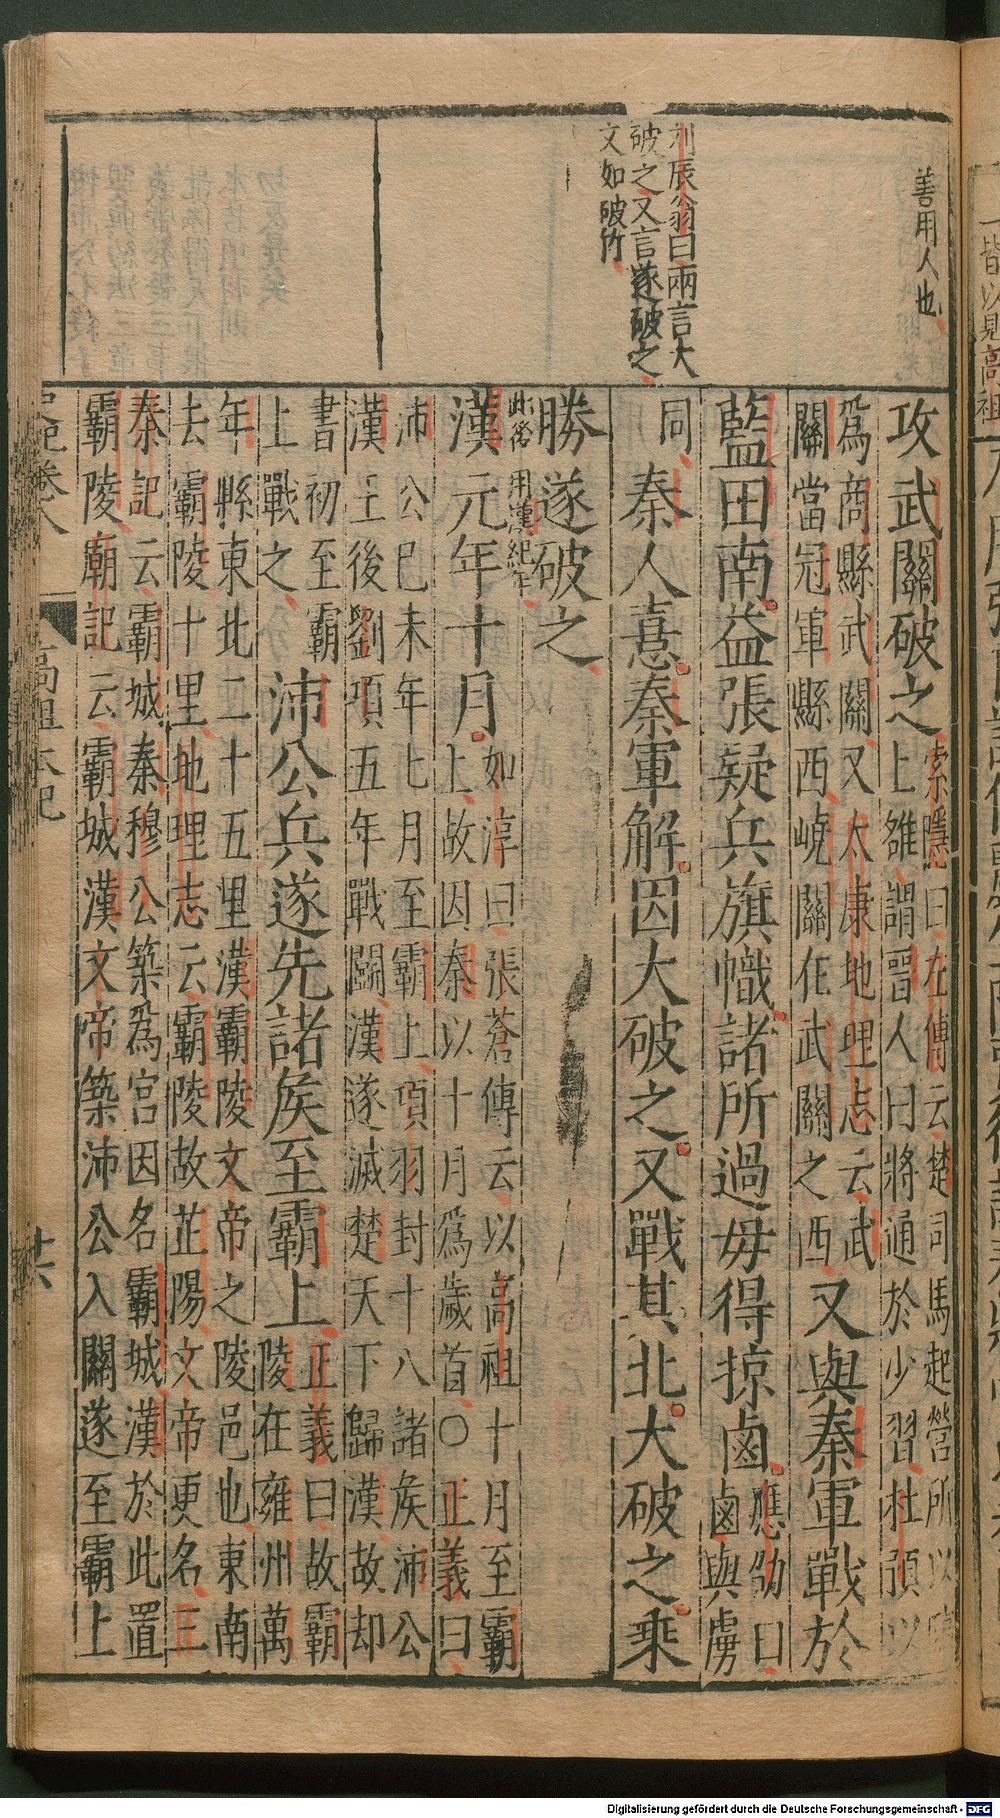 善用人也
刘辰翁曰兩言大
破之又言遂破之
文如破竹
攻武關破之
索隱曰左傳云楚司馬起營所以
上雒謂晉人曰將通於少習杜預以
爲商縣武關又太康地理志云武
關當冠軍縣西嶢關在武關之西
又與秦軍戰於
藍田南益張疑兵旗幟諸所過毋得掠鹵
應劭曰
鹵與虜
同
秦人憙秦軍解因大破之又戰其北大破之乘
勝遂破之
此後用漢紀年
漢元年十月
如淳曰張蒼傳云以高祖十月至霸
上故因秦以十月爲歲首○正義曰
沛公巳未年七月至霸上項羽封十八諸侯沛公
漢王後劉項五年戰鬬漢遂滅楚天下歸漢故却
書初至霸
上戰之
沛公兵遂先諸侯至霸上
正義曰故霸
陵在雍州萬
年縣東北二十五里漢霸陵文帝之陵邑也東南
去霸陵十里地理志云霸陵故芷陽文帝更名三
秦記云霸城秦穆公築爲宮因名霸城漢於此置
霸陵廟記云霸城漢文帝築沛公入關遂至霸上
卷八
高祖本紀
廿六
皆以見高祖
Digitalisierung gefördert durch die Deutsche Forschungsgemeinschaft - DFG